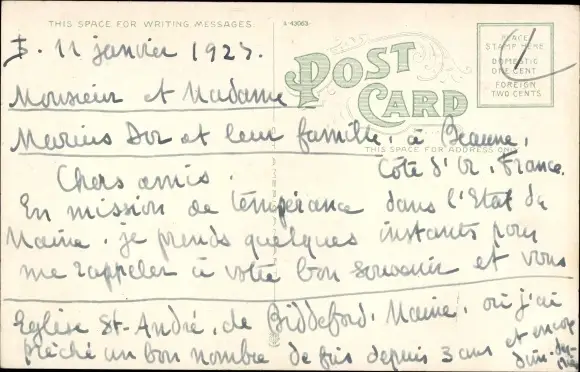 THIS SPACE FOR WRITING MESSAGES
A-43063
PLACE
STAMP HERE
DOMESTIC
ONE CENT
FOREIGN
TWO CENTS
1
POST
CARD
THIS SPACE FOR ADDRESS ONLY
11 janvier 1925.
Monsieur et Madame
Marius Dor et leur famille, à Beaune,
Côte d'Or, France.
Chers amis,
En mission de tempérance dans l'Etat du
Maine, je prends quelques instants pour
me rappeler à votre bon souvenir et vous
Eglise St-André, de Biddeford, Maine, où j'ai
prêché un bon nombre de fois depuis 3 ans
et encore